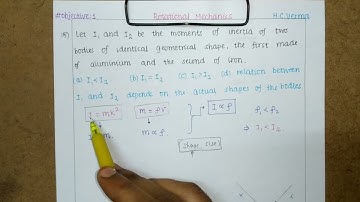 #objective:1 Rotational Mechanics H.C. Verma
15) Let I₁ and I₂ be the moments of inertia of two
bodies of identical geometrical shape, the first made
of aluminium and the second of iron.
(a) I₁ < I₂ (b) I₁ = I₂ (c) I₁ > I₂ (d) relation between
I₁ and I₂ depends on the actual shapes of the bodies
I = mk² m = ρv I ∝ ρ ρ₁ < ρ₂
m ∝ ρ ⇒ I₁ < I₂
shape size